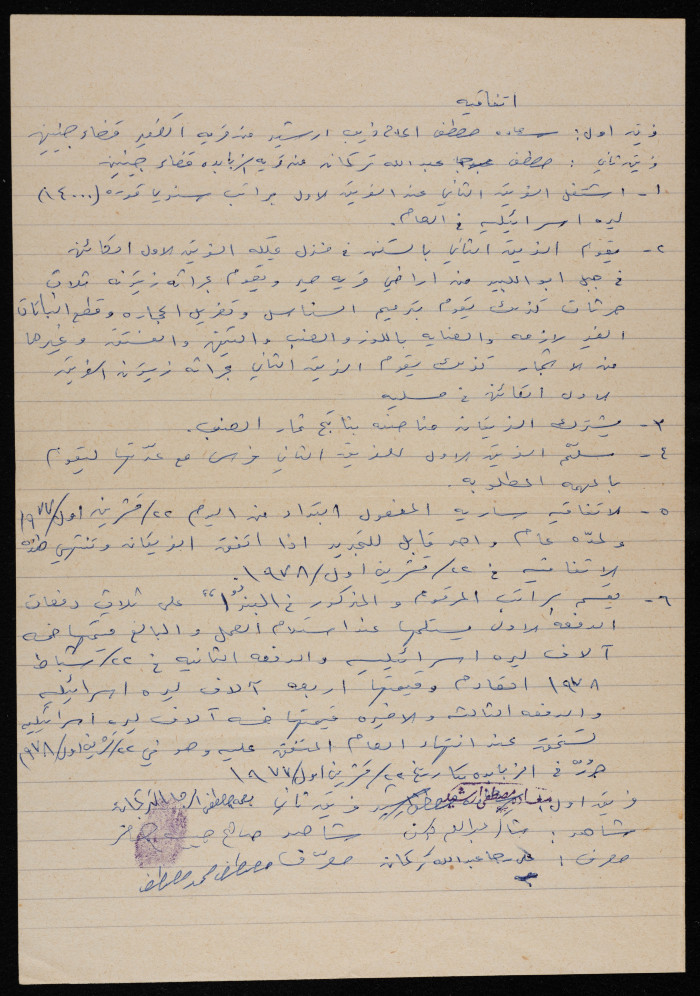 اتفاقيه
فريق اول: سعاده مصطفى الحاج ذيب ارشيد من قريه الكفير قضاء جنين
فريق ثاني: مصطفى عبدالله تركمان من قريه الزبابده قضاء جنين
١- اشتغل الفريق الثاني عند الفريق الاول براتب سنويا قدره (١٤٠٠٠)
ليره اسرائيليه في العام.
٢- يقوم الفريق الثاني بالسكن في منزل يملكه الفريق الاول الكائن
في جبل ابو اللبير من اراضي قريه صير ويقوم بحراثه زيتونه ثلاث
حرثات كذلك يقوم بترميم السناسل وتعزيل الحجاره وقطع النباتات
الغير لازمه والعنايه باللوز والعنب والتين والفستق وغيرها
من الاشجار كذلك يقوم الفريق الثاني بحراثه زيتون الفريق
الاول الكائن في مسليه
٣- يشترك الفريقان مناصفه بناتج ثمار العنب.
٤- سلّم الفريق الاول للفريق الثاني فرس مع عدّتها ليقوم
بالمهمه المطلوبه.
٥- الاتفاقيه ساريه المفعول ابتداء من اليوم ٢٢/تشرين اول/١٩٧٧
ولمدّه عام واحد قابل للتجديد اذا اتفق الفريقان وتنتهي هذه
الاتفاقيه في ٢٢/تشرين اول/١٩٧٨.
٦- يقسم براتب المرقوم والمذكور في البند "١" على ثلاث دفعات
الدفعه الاولى يستلمها عند استلام العمل والبالغ قيمتها خمسه
آلاف ليره اسرائيليه والدفعه الثانيه في ٢٢/شباط
١٩٧٨ القادم وقيمتها اربعه آلاف ليره اسرائيليه
والدفعه الثالثه والاخيره قيمتها خمسه آلاف ليره اسرائيليه
تستحق عند انتهاء العام المتفق عليه وهو في ٢٢/تشرين اول/١٩٧٨
حرّر في الزبابده بتاريخ ٢٢/تشرين اول/١٩٧٧
فريق اول سعاده مصطفى ارشيد فريق ثاني مصطفى عبدالله تركمان
شاهد: شاهد صالح
معرف ١ عبدالله تركمان معرّف مصطفى محمد مصطفى